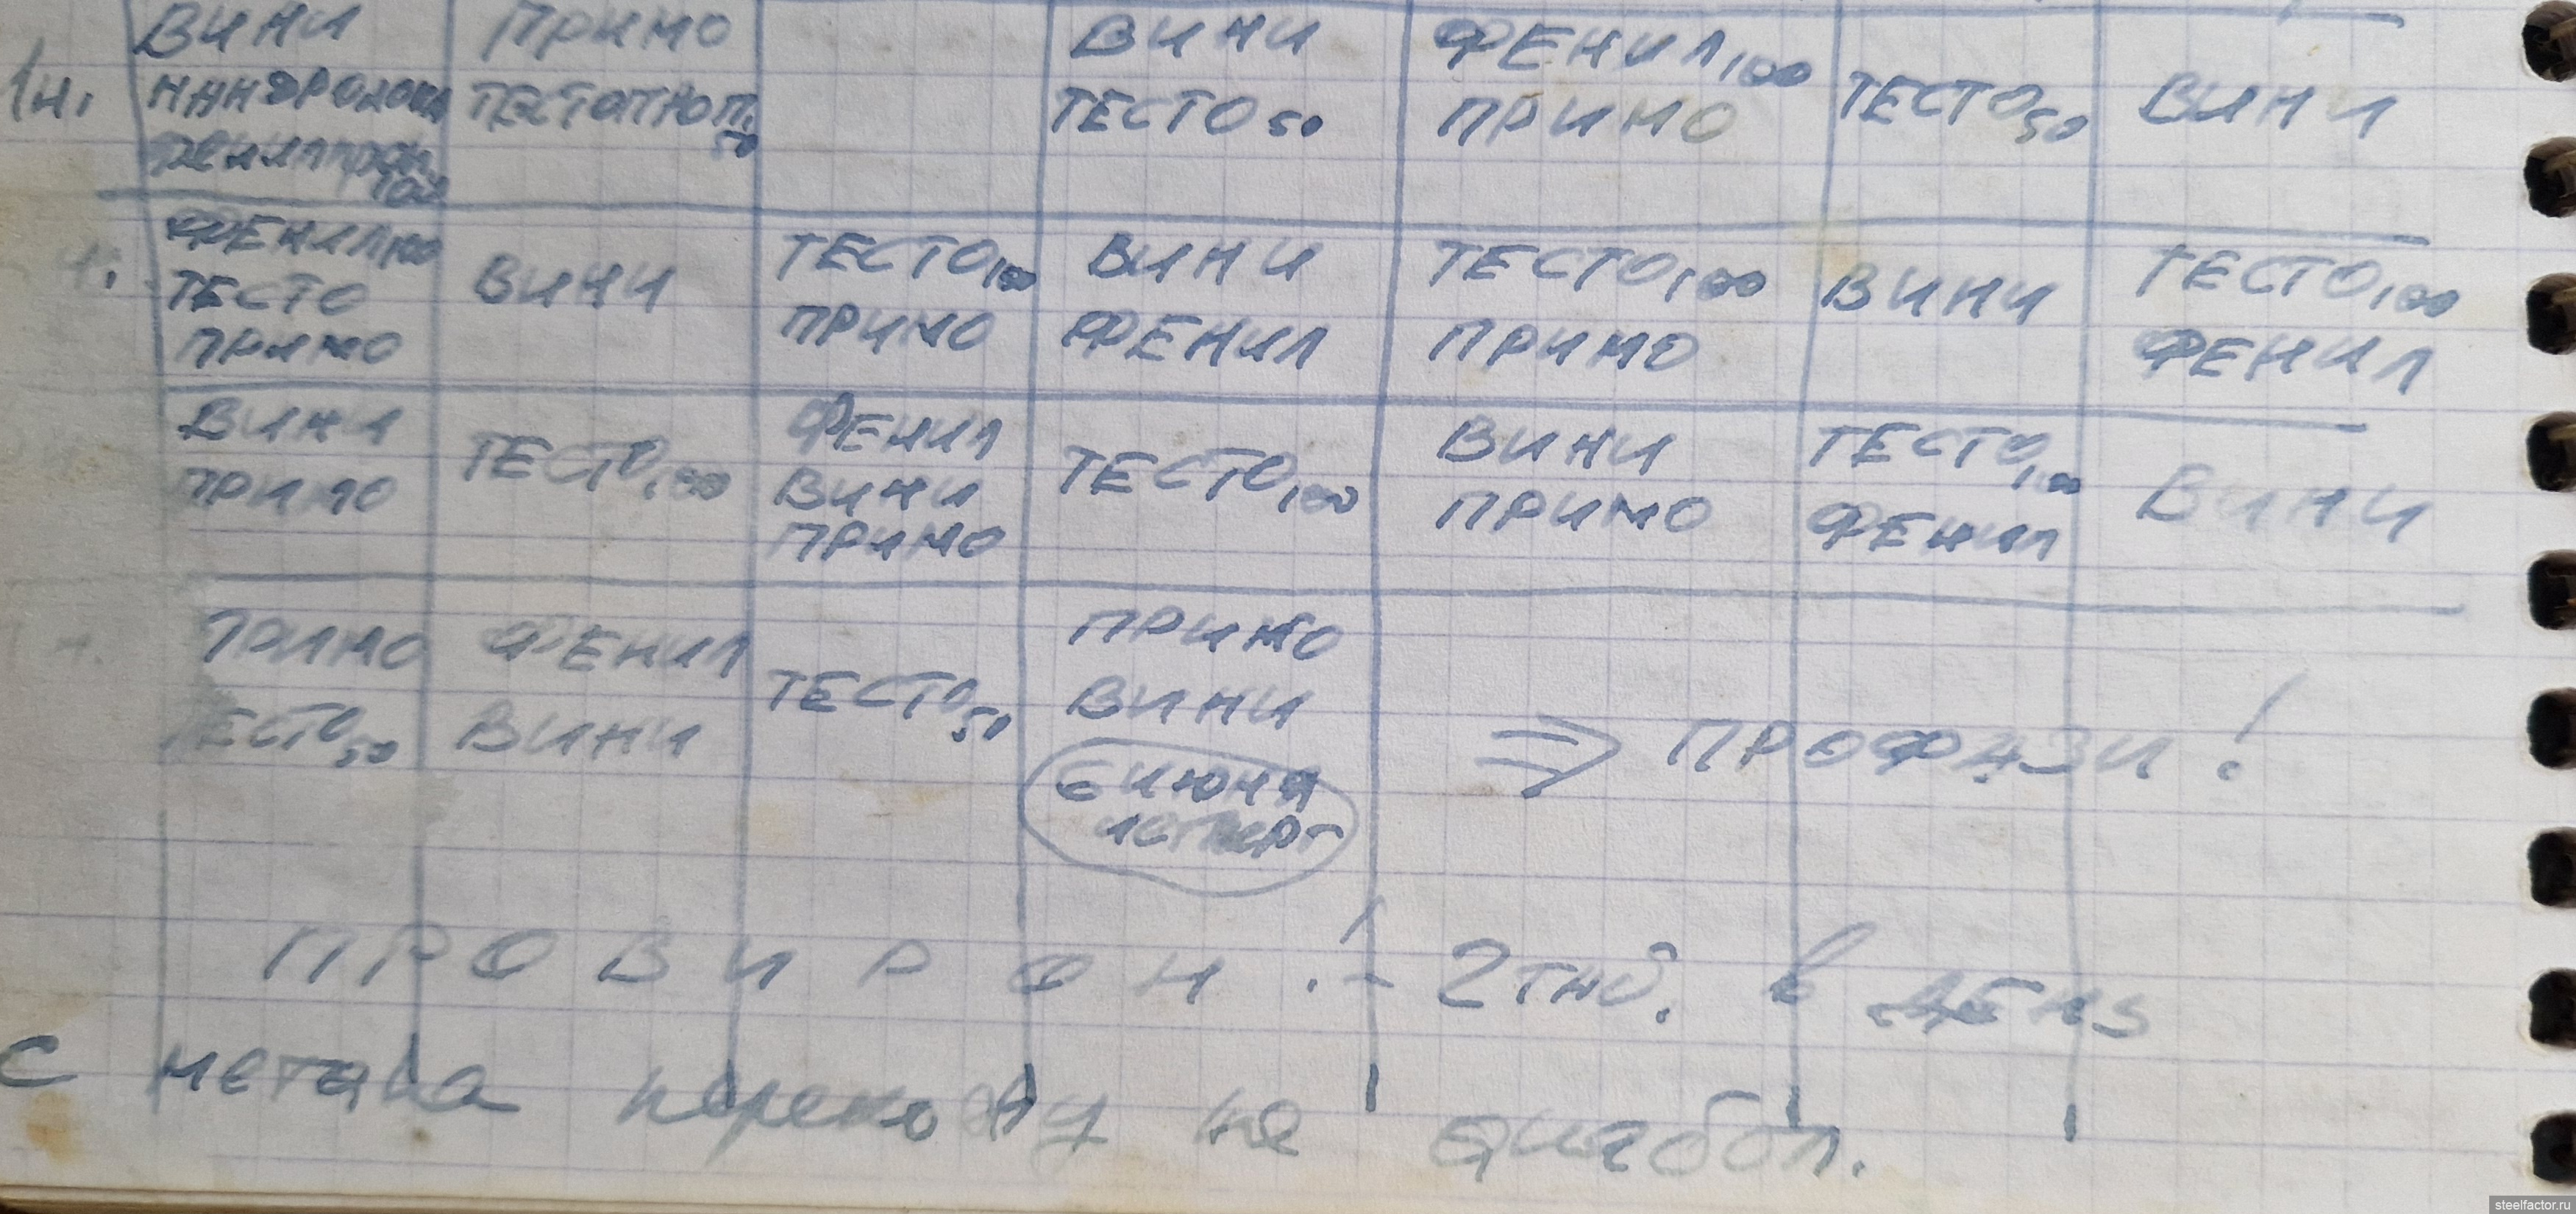 1н.
ВИНИ
НАНДРОЛОНА
ФЕНИЛПРОП. 100
ПРИМО
ТЕСТОПРОП. 50
ВИНИ
ТЕСТО 50
ФЕНИЛ 100
ПРИМО
ТЕСТО 50
ВИНИ
ФЕНИЛ 100
ТЕСТО
ПРИМО
ВИНИ
ТЕСТО 100
ПРИМО
ВИНИ
ФЕНИЛ
ТЕСТО 100
ПРИМО
ВИНИ
ТЕСТО 100
ФЕНИЛ
ВИНИ
ПРИМО
ТЕСТО 100
ФЕНИЛ
ВИНИ
ПРИМО
ТЕСТО 100
ВИНИ
ПРИМО
ТЕСТО 100
ФЕНИЛ
ВИНИ
ПРИМО
ТЕСТО 50
ФЕНИЛ
ВИНИ
ТЕСТО 50
ПРИМО
ВИНИ
6 ИЮНЯ
четверг
⇒ ПРОФАЗИ!
ПРОВИРОН! - 2 таб. в день
С метана перехожу на дианабол.
steelfactor.ru